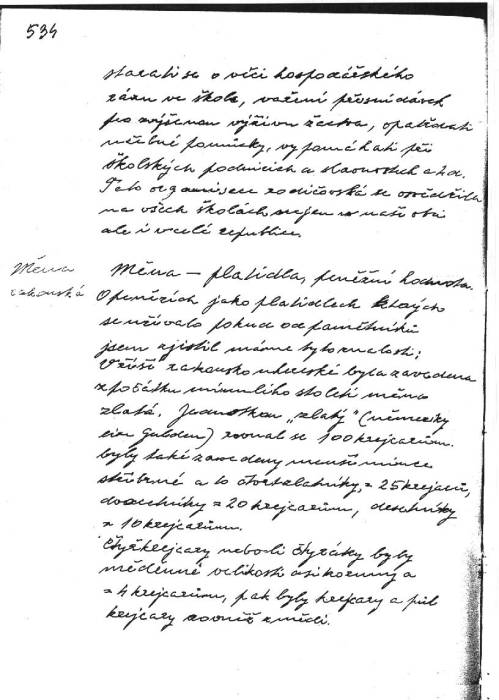 534
starati se o věci hospodářského
rázu ve škole, vaření přesnídávek
pro zvýšenou výživu žactva, opatřovati
učebné pomůcky, vypomáhati při
školských podnicích a slavnostech a t.d.
Tato organisace rodičovská se osvědčila
na všech školách nejen v naší obci
ale i v celé republice.
Měna
rakouská
Měna – platidla, peněžní hodnota.
O penězích jako platidlech kterých
se užívalo pokud od pamětníků
jsem zjistil máme tyto znalosti:
V říši rakousko uherské byla zavedena
z počátku minulého století měna
zlatá. Jednotkou „zlatý" (německy
ein Gulden) rovnal se 100 krejcarům.
byly také zavedeny menší mince
stříbrné a to čtvrtzlatníky, = 25 krejcarů,
dvacetníky = 20 krejcarům, desetníky
= 10 krejcarům.
Čtyřkrejcary neboli čtyráky byly
měděnné velikosti asi koruny a
= 4 krejcarům, pak byly krejcary a půl
krejcary rovněž z mědi.